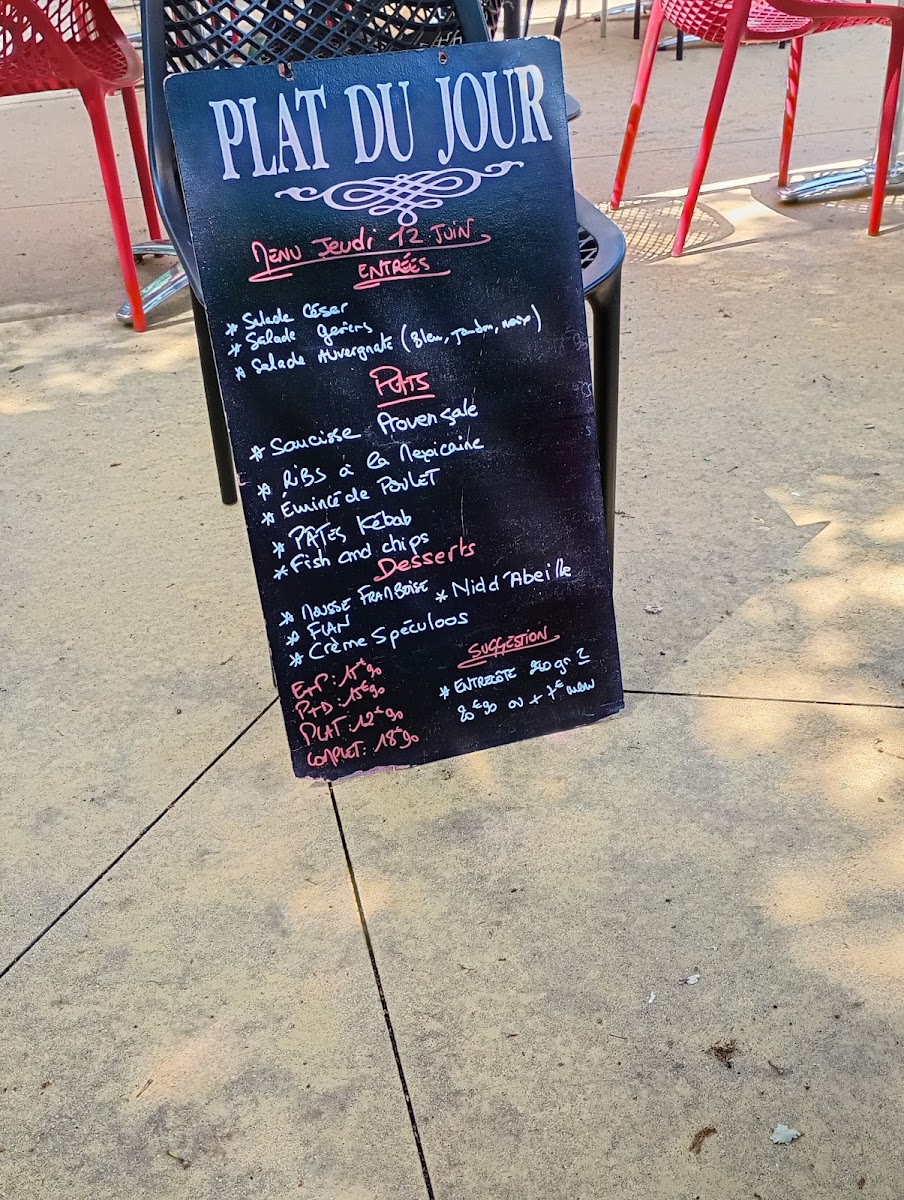 PLAT DU JOUR
MENU Jeudi 12 JUIN
ENTRÉES
* Salade César
* Salade gesiers
* Salade Auvergnate (Bleu, Jambon, noix)
PLATS
* Saucisse Provençale
* RiBS à la Mexicaine
* Émincé de POULET
* PÂTES Kébab
* Fish and chips
Desserts
* MOUSSE FRAMBOISE * Nid d'Abeille
* FLAN
* Crème Spéculoos
E+P : 15€90
P+D : 15€90
PLAT : 12€90
COMPLET : 18€90
SUGGESTION
* ENTRECÔTE gr
20€90 ou + 7€ menu